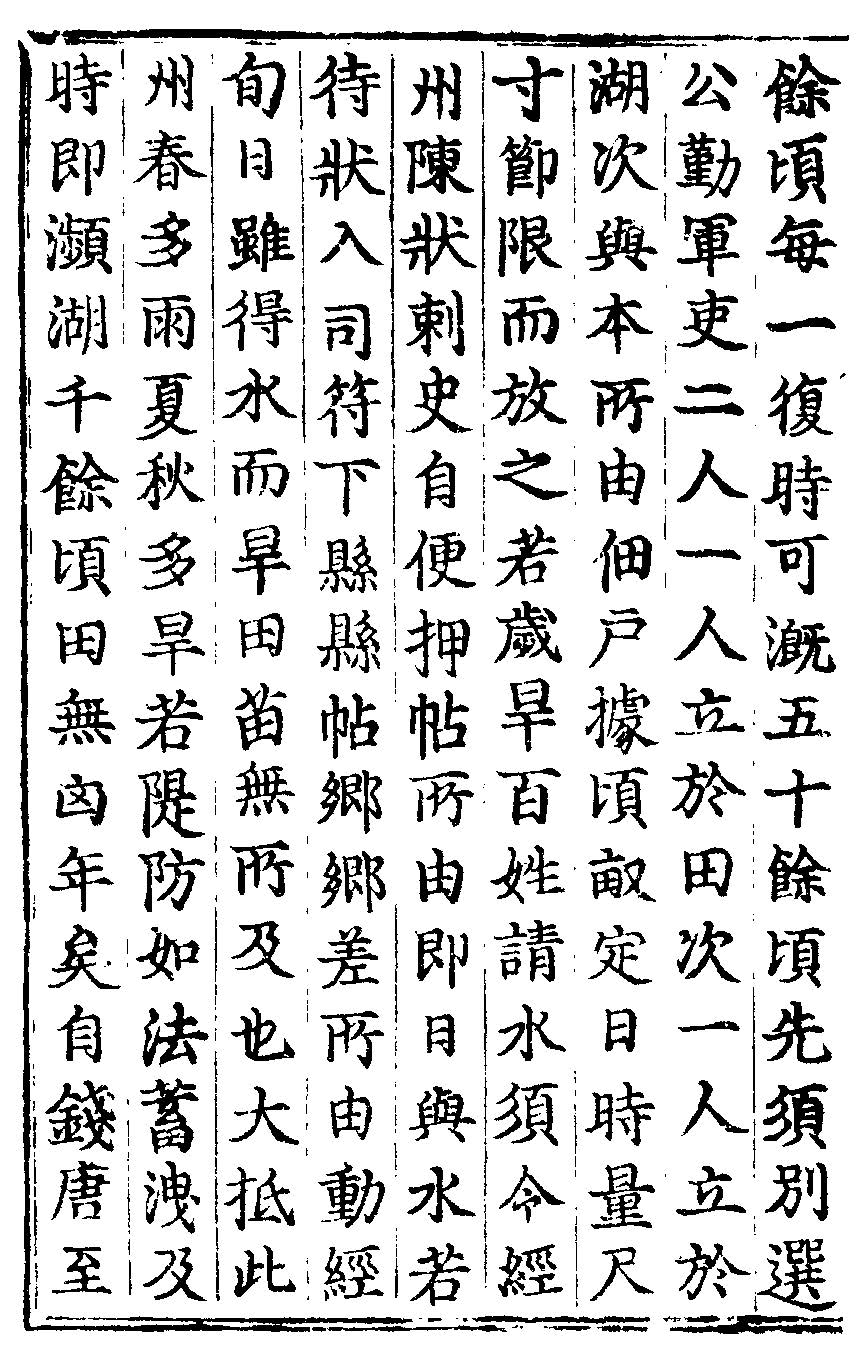 餘頃每一復時可漑五十餘頃先須別選
公勤軍吏二人一人立於田次一人立於
湖次與本所由佃戸據頃畝定日時量尺
寸節限而放之若歲旱百姓請水須令經
州陳狀刺史自便押帖所由即日與水若
待狀入司符下縣縣帖鄉鄉差所由動經
旬日雖得水而旱田苗無所及也大抵此
州春多雨夏秋多旱若隄防如法蓄洩及
時即瀕湖千餘頃田無凶年矣自錢唐至